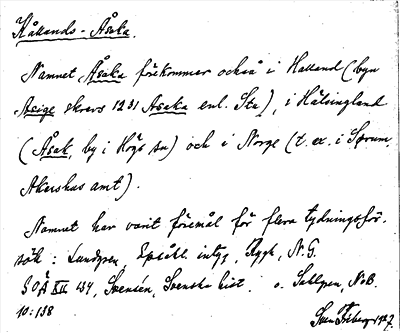 Kållands-Åsaka.
Namnet Åsaka förekommer också i Halland (byn
Asige skrevs 1231 Asaka enl. Sta), i Hälsingland
(Åsak, by i Högs sn) och i Norge (t. ex. i Sørum,
Akershus amt).
Namnet har varit föremål för flera tydningsför-
sök: Lundgren, Språkl. intyg, Rygh, N.G.
SOÄ XII 134, Svensén, Svenska hist. o. Sahlgren, NoB.
10:158
Sven